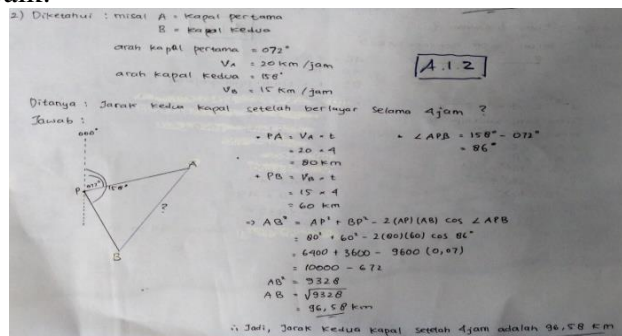 2) Diketahui : misal A = kapal pertama
B = kapal kedua
arah kapal pertama = 072°
VA = 20 km /jam
arah kapal kedua = 158°
VB = 15 km /jam
A.1.2
Ditanya : Jarak kedua kapal setelah berlayar selama 4jam ?
Jawab :
000°
P
072°
158°
A
?
B
• PA = VA × t
= 20 × 4
= 80 km
• PB = VB × t
= 15 × 4
= 60 km
• ∠APB = 158° - 072°
= 86°
⇒ AB² = AP² + BP² - 2(AP)(AB) cos ∠APB
= 80² + 60² - 2(80)(60) cos 86°
= 6400 + 3600 - 9600 (0,07)
= 10000 - 672
AB² = 9328
AB = √9328
= 96,58 km
∴ Jadi, Jarak kedua kapal setelah 4jam adalah 96,58 km